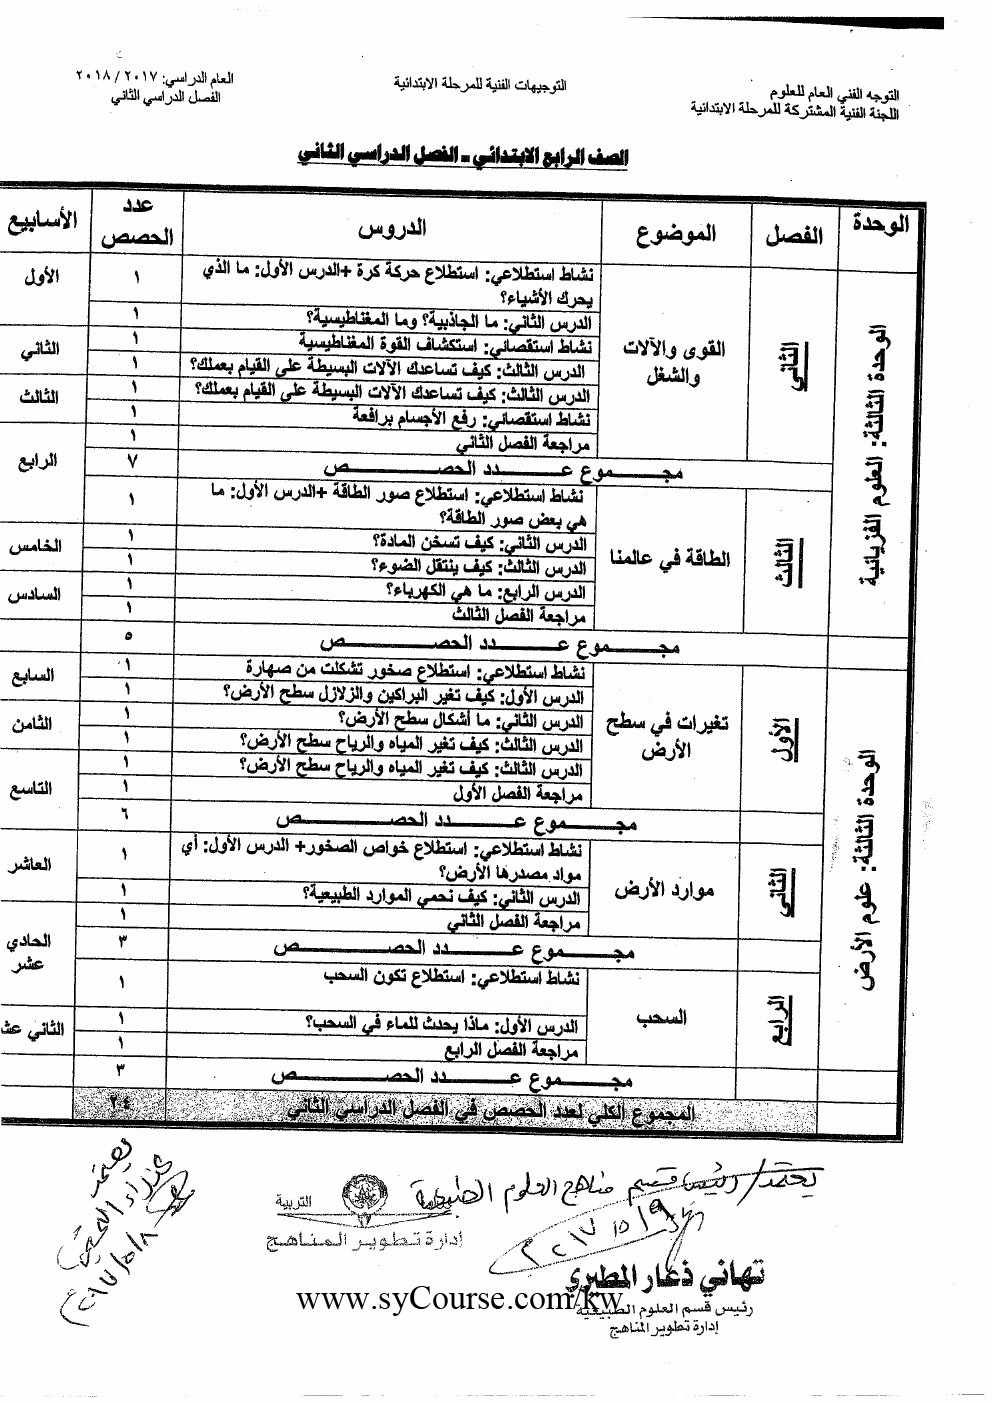 التوجه الفني العام للعلوم
اللجنة الفنية المشتركة للمرحلة الابتدائية
التوجيهات الفنية للمرحلة الابتدائية
العام الدراسي: ٢٠١٧ / ٢٠١٨
الفصل الدراسي الثاني
الصف الرابع الابتدائي - الفصل الدراسي الثاني
الوحدة الفصل الموضوع الدروس عدد الحصص الأسابيع
الوحدة الثالثة: العلوم الفزيائية
الثاني
القوى والآلات
والشغل
نشاط استطلاعي: استطلاع حركة كرة +الدرس الأول: ما الذي
يحرك الأشياء؟
١
الأول
الدرس الثاني: ما الجاذبية؟ وما المغناطيسية؟ ١
نشاط استقصائي: استكشاف القوة المغناطيسية ١ الثاني
الدرس الثالث: كيف تساعدك الآلات البسيطة على القيام بعملك؟ ١
الدرس الثالث: كيف تساعدك الآلات البسيطة على القيام بعملك؟ ١ الثالث
نشاط استقصائي: رفع الأجسام برافعة ١
مراجعة الفصل الثاني ١ الرابع
مجموع عدد الحصص ٧
الثالث
الطاقة في عالمنا
نشاط استطلاعي: استطلاع صور الطاقة +الدرس الأول: ما
هي بعض صور الطاقة؟
١
الدرس الثاني: كيف تسخن المادة؟ ١ الخامس
الدرس الثالث: كيف ينتقل الضوء؟ ١
الدرس الرابع: ما هي الكهرباء؟ ١ السادس
مراجعة الفصل الثالث ١
مجموع عدد الحصص ٥
الوحدة الثالثة: علوم الأرض
الأول
تغيرات في سطح
الأرض
نشاط استطلاعي: استطلاع صخور تشكلت من صهارة ١ السابع
الدرس الأول: كيف تغير البراكين والزلازل سطح الأرض؟ ١
الدرس الثاني: ما أشكال سطح الأرض؟ ١ الثامن
الدرس الثالث: كيف تغير المياه والرياح سطح الأرض؟ ١
الدرس الثالث: كيف تغير المياه والرياح سطح الأرض؟ ١ التاسع
مراجعة الفصل الأول ١
مجموع عدد الحصص ٦
الثاني
موارد الأرض
نشاط استطلاعي: استطلاع خواص الصخور+ الدرس الأول: أي
مواد مصدرها الأرض؟
١
العاشر
الدرس الثاني: كيف نحمي الموارد الطبيعية؟ ١
مراجعة الفصل الثاني ١ الحادي
عشر
مجموع عدد الحصص ٣
الرابع
السحب
نشاط استطلاعي: استطلاع تكون السحب ١
الدرس الأول: ماذا يحدث للماء في السحب؟ ١ الثاني عش
مراجعة الفصل الرابع ١
مجموع عدد الحصص ٣
المجموع الكلي لعدد الحصص في الفصل الدراسي الثاني ٢٤
يعتمد / رئيس قسم مناهج العلوم الطبيعية
٢٠١٧/٥/٩
التربية
إدارة تطوير المناهج
تهاني ذعار المطيري
رئيس قسم العلوم الطبيعية
إدارة تطوير المناهج
www.syCourse.com/kw
يعتمد
٢٠١٧/٥/٨